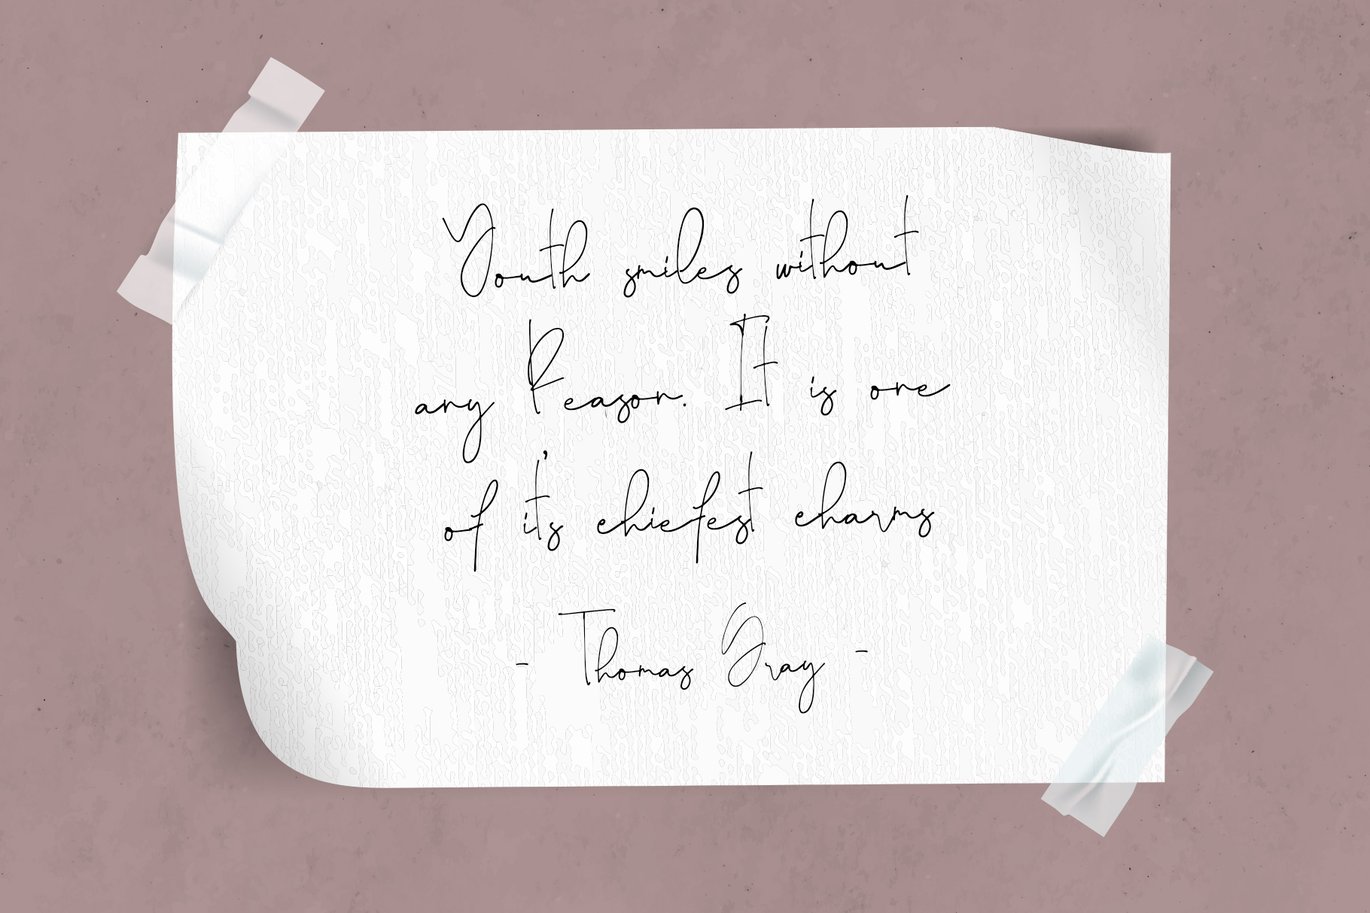 Youth smiles without
any Reason. It is one
of it's chiefest charms
- Thomas Gray -